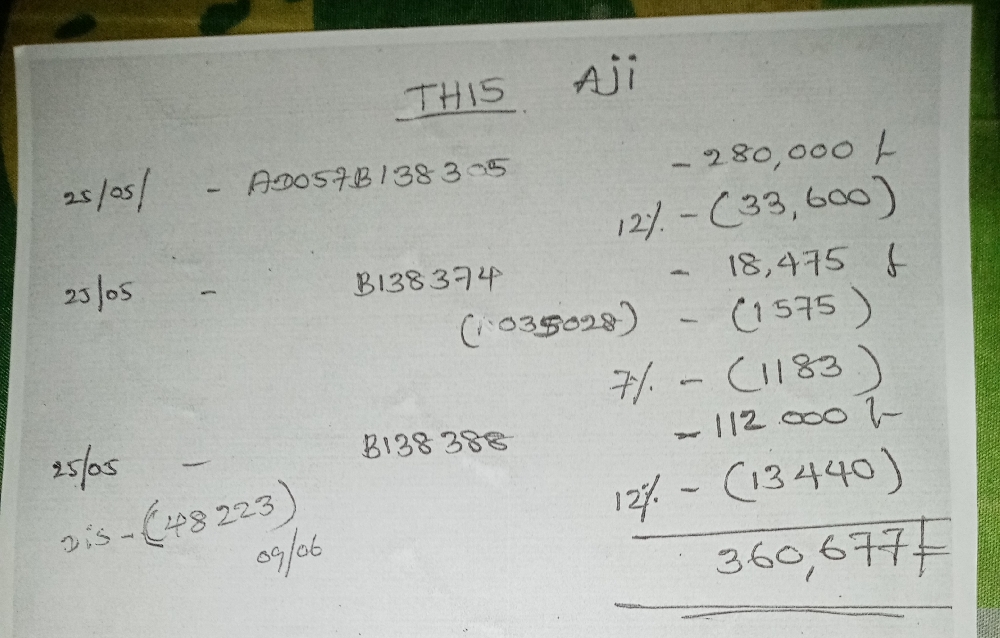 THIS Aji
25/05/ - AD057B138305 - 280,000
12% - (33,600)
25/05 - B138374 - 18,475
035028) - (1575)
7% - (1183)
25/05 - B138388 - 112.000
12% - (13440)
Dis - (48223)
09/06
360,677